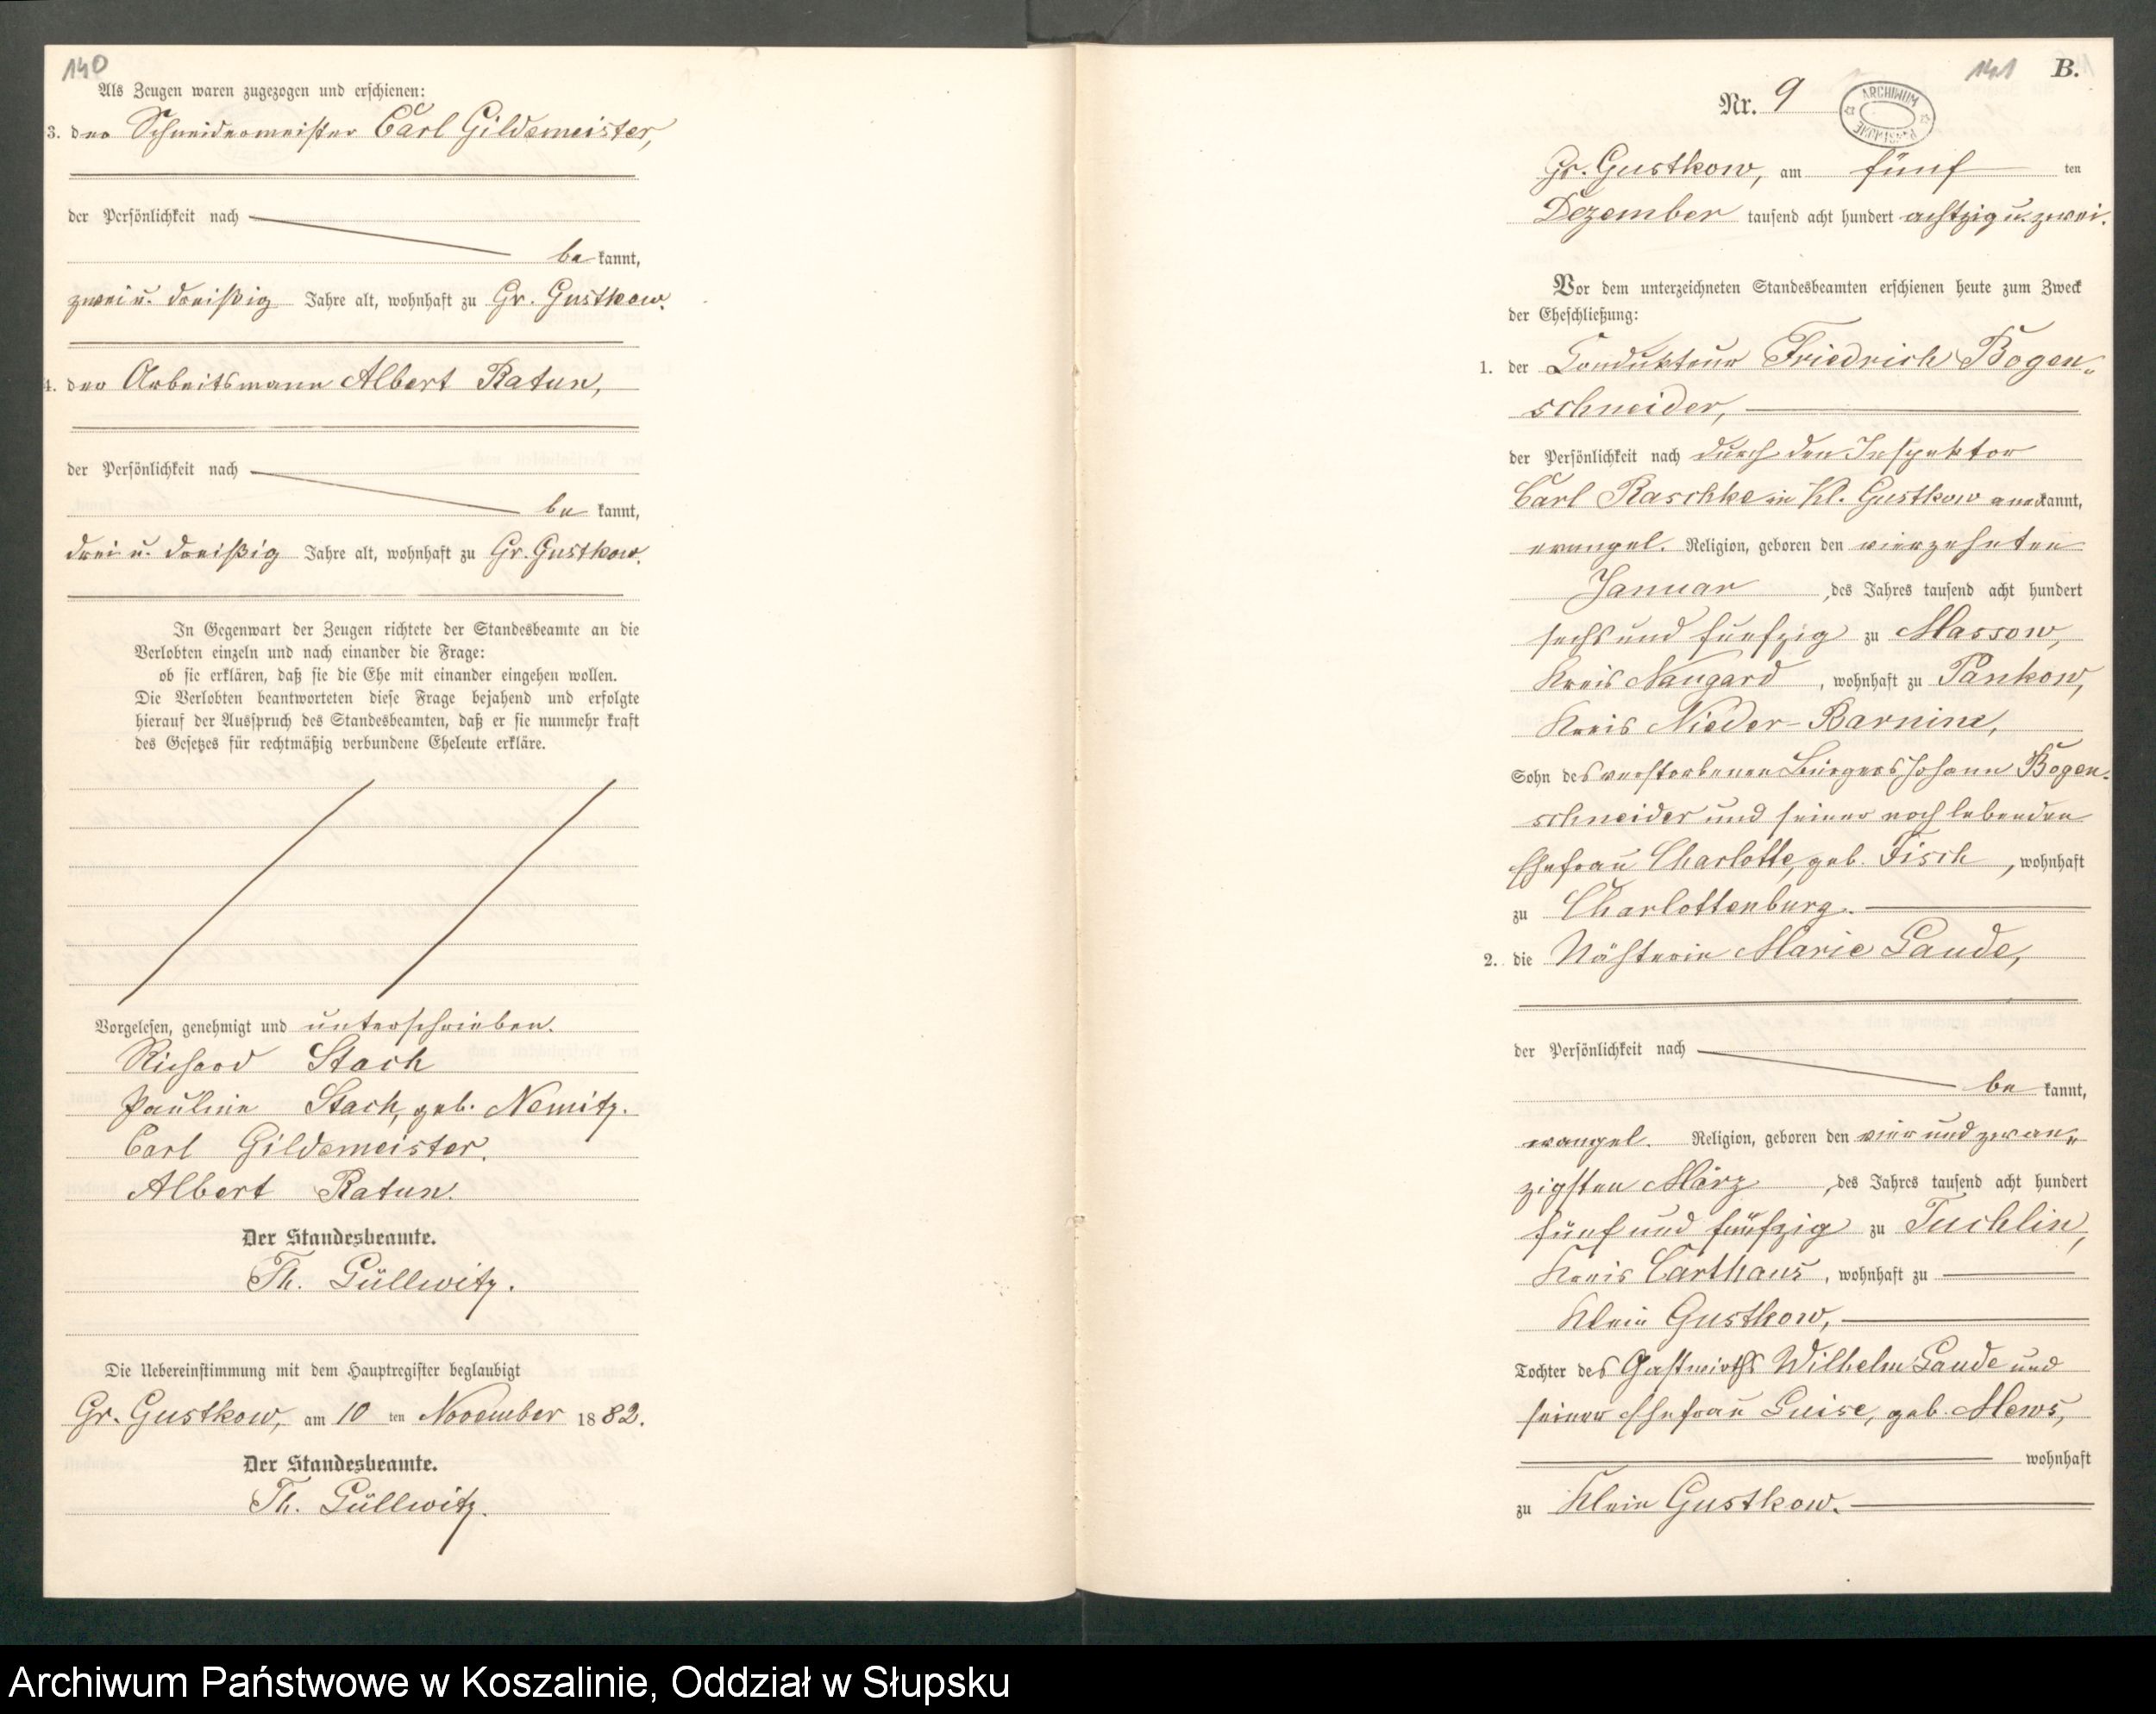 140
Als Zeugen waren zugezogen und erschienen:
3. der Schneidermeister Carl Gildemeister,
der Persönlichkeit nach
be kannt,
zwei u. dreißig Jahre alt, wohnhaft zu Gr. Gustkow.
4. der Arbeitsmann Albert Ratun,
der Persönlichkeit nach
be kannt,
drei u. dreißig Jahre alt, wohnhaft zu Gr. Gustkow.
In Gegenwart der Zeugen richtete der Standesbeamte an die
Verlobten einzeln und nach einander die Frage:
ob sie erklären, daß sie die Ehe mit einander eingehen wollen.
Die Verlobten beantworteten diese Frage bejahend und erfolgte
hierauf der Ausspruch des Standesbeamten, daß er sie nunmehr kraft
des Gesetzes für rechtmäßig verbundene Eheleute erkläre.
Vorgelesen, genehmigt und unterschrieben.
Richard Stach
Pauline Stach, geb. Nemitz.
Carl Gildemeister.
Albert Ratun.
Der Standesbeamte.
Th. Güllwitz.
Die Uebereinstimmung mit dem Hauptregister beglaubigt
Gr. Gustkow, am 10 ten November 1882.
Der Standesbeamte.
Th. Güllwitz.
141 B.
Nr. 9
ARCHIWUM
Gr. Gustkow, am fünf ten
Dezember tausend acht hundert achtzig u. zwei.
Vor dem unterzeichneten Standesbeamten erschienen heute zum Zweck
der Eheschließung:
1. der Condukteur Friedrich Bogen-
schneider,
der Persönlichkeit nach durch den Inspektor
Carl Raschke in Kl. Gustkow anerkannt,
evangel. Religion, geboren den vierzehnten
Januar, des Jahres tausend acht hundert
sechs und fünfzig zu Massow,
Kreis Naugard, wohnhaft zu Pankow,
Kreis Nieder-Barnim,
Sohn des verstorbenen Bürgers Johann Bogen-
schneider und seiner noch lebenden
Ehefrau Charlotte, geb. Fisch, wohnhaft
zu Charlottenburg.
2. die Nähterin Marie Gaude,
der Persönlichkeit nach
be kannt,
evangel. Religion, geboren den vier und zwan-
zigsten März, des Jahres tausend acht hundert
fünf und fünfzig zu Tuchlin,
Kreis Carthaus, wohnhaft zu
Klein Gustkow,
Tochter des Gastwirths Wilhelm Gaude und
seiner Ehefrau Luise, geb. Mews,
wohnhaft
zu Klein Gustkow.
Archiwum Państwowe w Koszalinie, Oddział w Słupsku